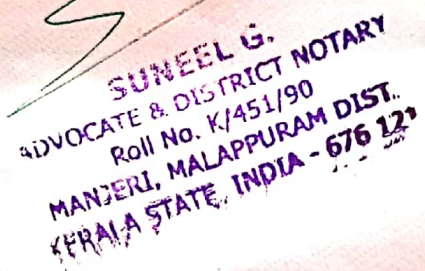 SUNEEL G.
ADVOCATE & DISTRICT NOTARY
Roll No. K/451/90
MANJERI, MALAPPURAM DIST.
KERALA STATE, INDIA - 676 121